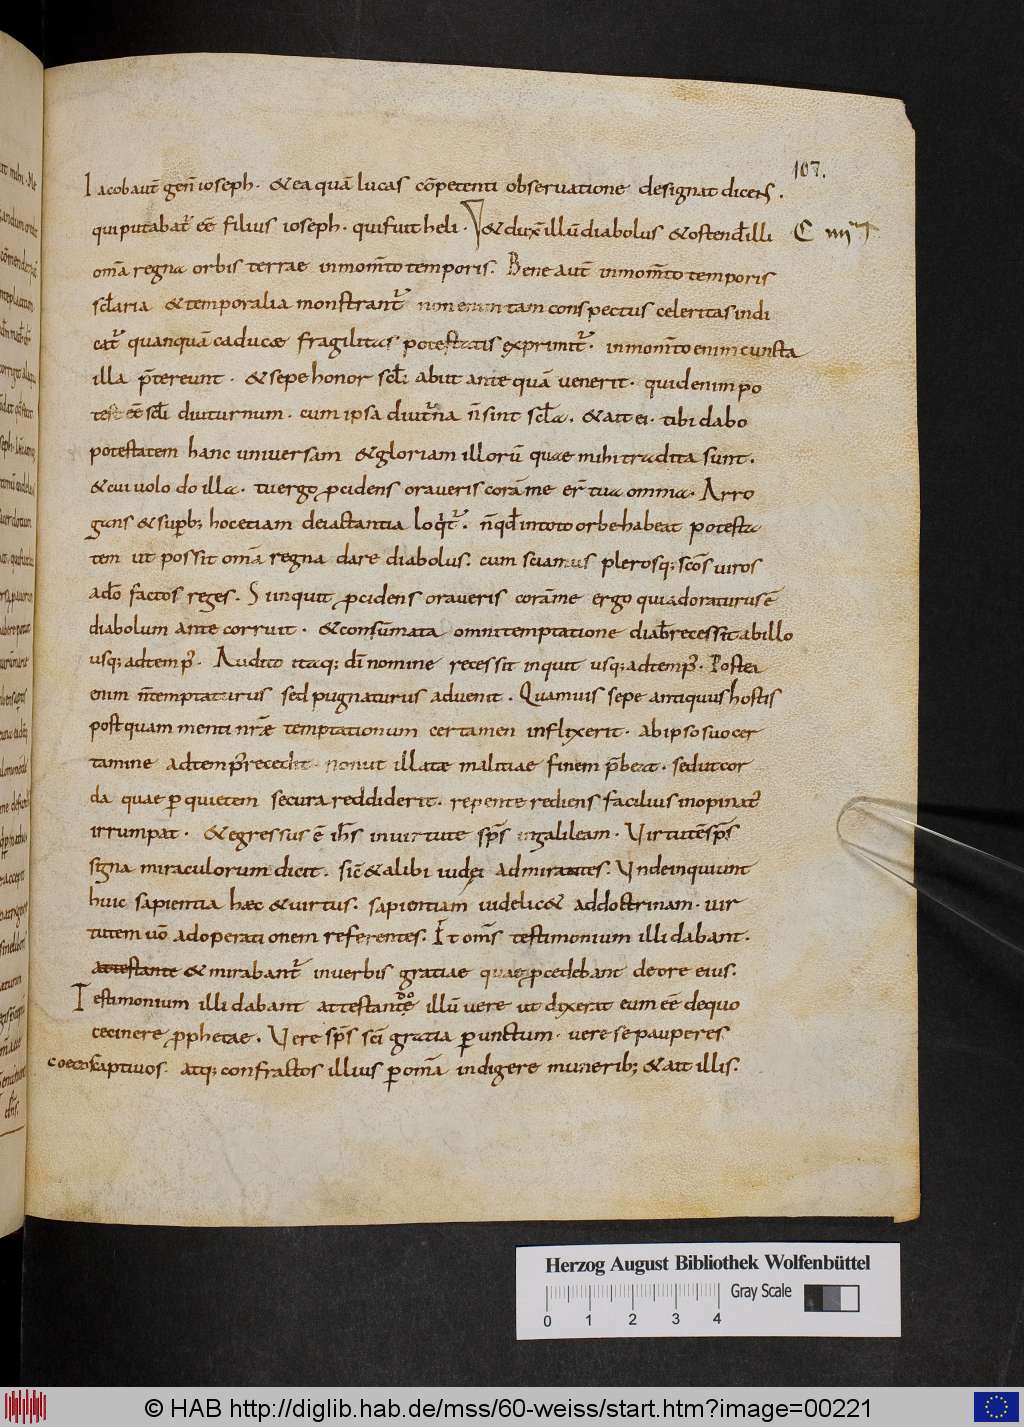 107.
Iacob aut̄ gen̄ ioseph. & ea quā lucas cōpetenti observatione designat dicens.
qui putabat᷑ eē filius ioseph. qui fuit heli. & dux̄ illū diabolus & ostend̄ illi
C IIII
om̄a regna orbis terrae in mom̄to temporis. Bene aut̄ in mom̄to temporis
scłaria & temporalia monstrant᷑ non enim tam conspectus celeritas indi
cat᷑ quanquā caducae fragilitas potestatis exprimit᷑. in mom̄to enim cuncta
illa p̄tereunt. & sepe honor scłi abiit ante quā venerit. quid enim po
test eē scłi diuturnum. cum ipsa diut᷑na n̄ sint scła. & ait ei. tibi dabo
potestatem hanc universam & gloriam illorū quae mihi tradita sunt.
& cui volo do illa. tu ergo ꝓcidens oraveris corā me er̄ tua omnia. Arro
gans & supb; hoc etiam de iactantia loqit᷑. n̄ qđ in toto orbe habeat potesta
tem ut possit om̄a regna dare diabolus. cum sciamus plerosq; scōs viros
a dō factos reges. Si inquit ꝓcidens oraveris corā me ergo qui adoraturus ē
diabolum ante corruit. & consūmata omni temptatione diab̄ recessit ab illo
usq; ad temp᷒. Audito itaq; dī nomine recessit inquit usq; ad temp᷒. Postea
enim n̄ temptaturus sed pugnaturus advenit. Quamvis sepe antiquus hostis
postquam menti nr̄ae temptationum certamen inflixerit. ab ipso suo cer
tamine ad temp᷒ recedit. non ut illatae malitiae finem p̄beat. sed ut cor
da quae ꝑ quietem secura reddiderit. repente rediens facilius inopinat᷒
irrumpat. & egressus ē ih̄s in virtute sp̄s in galileam. Virtutē sp̄s
signa miraculorum dicit. sic̄ & alibi iudei admirantes. Unde inquiunt
huic sapientia haec & virtus. sapientiam videlic& ad doctrinam. vir
tutem vō ad operationem referentes. Et om̄s testimonium illi dabant.
attestante & mirabant᷑ in verbis gratiae quae ꝓcedebant de ore eius.
Testimonium illi dabant attestante dō illū vere ut dixerat eum eē de quo
cecinere ꝓphetae. Vere sp̄s sci gratia ꝑunctum. vere se pauperes
coecos captivos. atq; confractos illius ꝑ om̄a indigere munerib; & ait illis.
Herzog August Bibliothek Wolfenbüttel
Gray Scale
0 1 2 3 4
© HAB http://diglib.hab.de/mss/60-weiss/start.htm?image=00221